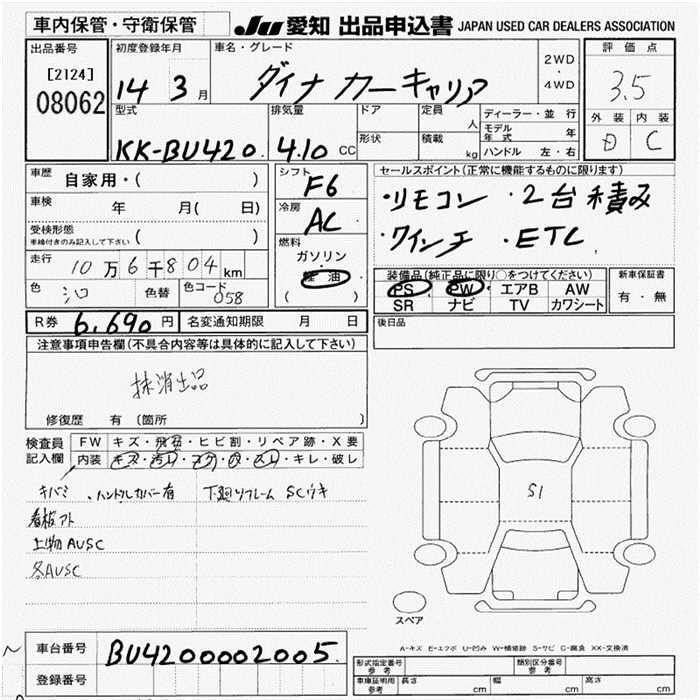 車内保管・守衛保管
JU 愛知 出品申込書 JAPAN USED CAR DEALERS ASSOCIATION
出品番号
[2124]
08062
初度登録年月
14 3 月
車名・グレード
ダイナ カーキャリア
2WD
・
4WD
評価点
3.5
外装 内装
D C
型式
KK-BU420
排気量
4.10 CC
ドア
形状
定員
人
積載
kg
ディーラー・並行
モデル年式 年
ハンドル 左・右
車歴 自家用・( )
車検 年 月( 日)
受検形態
車検付きのみ記入して下さい ( )
走行 10万6千804km
色 シロ 色替 色コード 058
シフト F6
冷房 AC
燃料
ガソリン
軽油
( )
セールスポイント(正常に機能するものに限ります)
・リモコン ・2台積み
・ウインチ ・ETC
装備品(純正品に限り○をつけてください)
PS PW エアB AW
SR ナビ TV カワシート
新車保証書
有・無
R券 6,690円 名変通知期限 月 日
後日品
注意事項申告欄(不具合内容等は具体的に記入して下さい)
抹消出品
修復歴 有 〔箇所 〕
検査員記入欄
FW キズ・飛石・ヒビ割・リペア跡・X要
内装 キズ・汚レ・コゲ・穴・スレ・キレ・破レ
キバミ ・ハンドルカバー有 下廻リフレーム SCウキ
看板アト
上物AUSC
各AUSC
S1
スペア
A-キズ E-エクボ U-凹み W-補修跡 S-サビ C-腐食 XX-交換済
車台番号 BU4200002005
登録番号
形式指定番号 参考
類別区分番号 参考
車庫証明用 参考 長さ cm 幅 cm 高さ cm